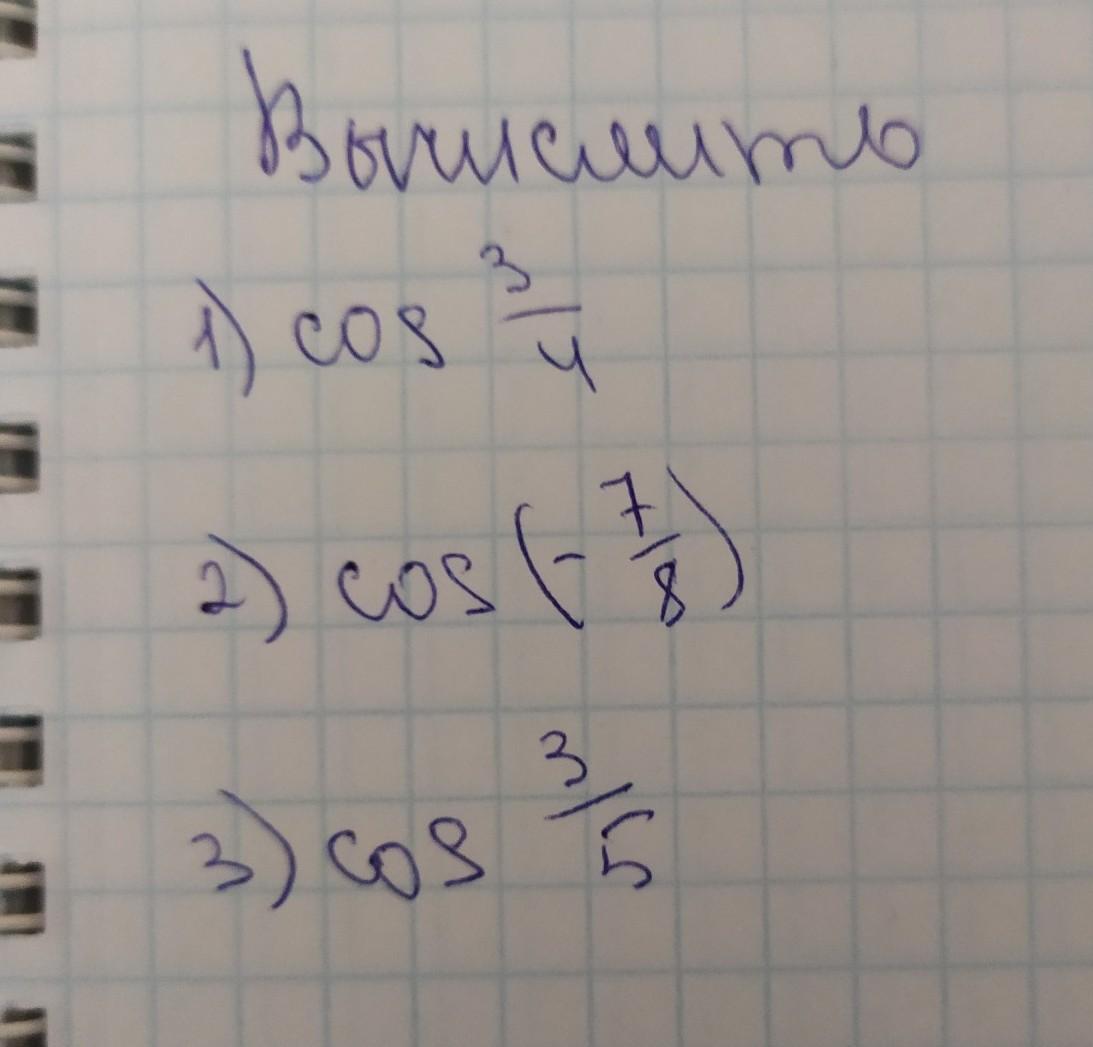 Вычислить
1) cos 3/4
2) cos (- 7/8)
3) cos 3/5